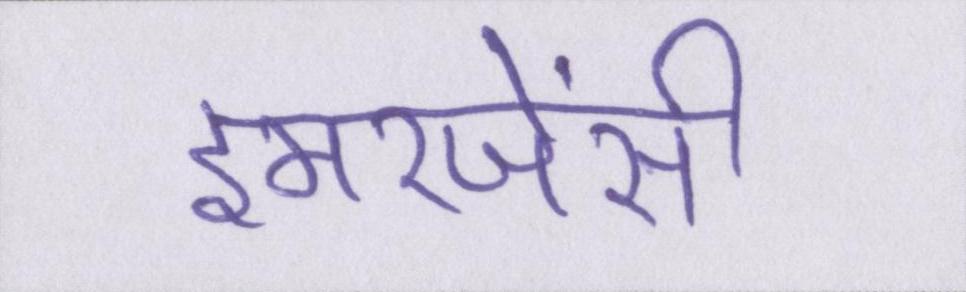 इमरजेंसी